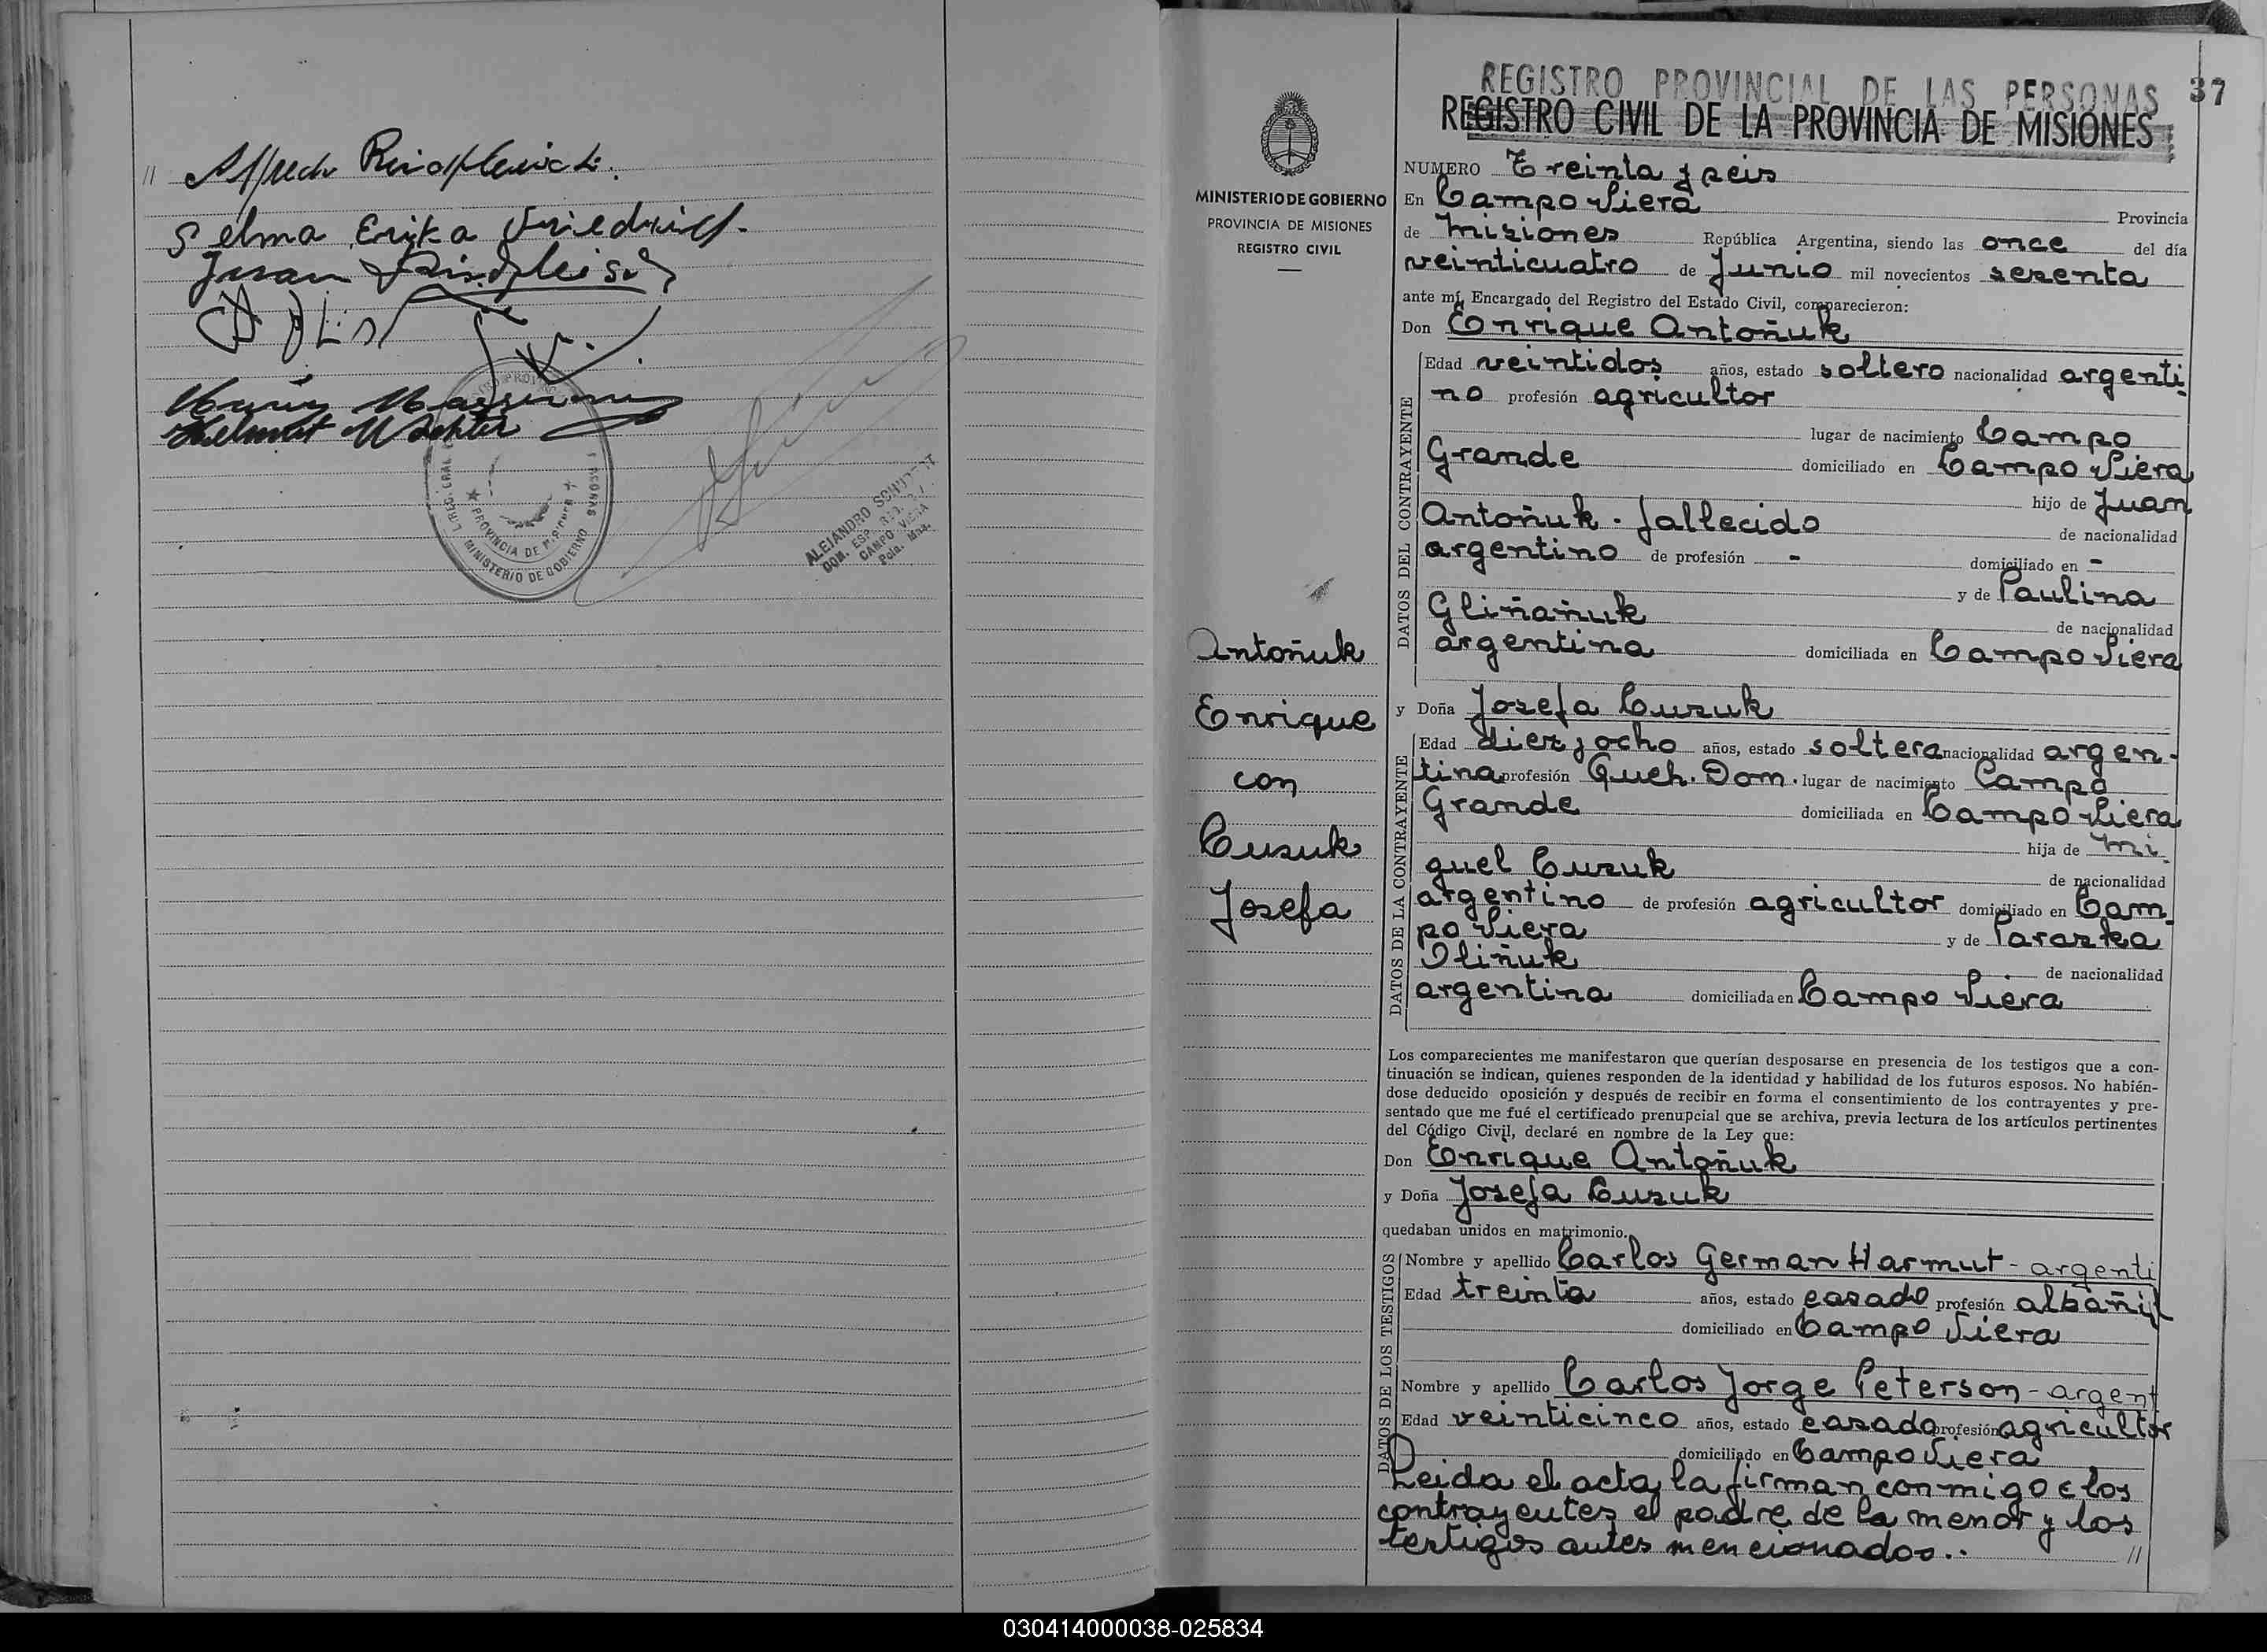 // Alfredo
Selma Erika Friedrich.
Juan
Helmut Wachter
PROVINCIA DE
MINISTERIO DE GOBIERNO
ALEJANDRO SCHMIDT
CAMPO VIERA
Pcia. Mns.
MINISTERIO DE GOBIERNO
PROVINCIA DE MISIONES
REGISTRO CIVIL
Antoñuk
Enrique
con
Cuzuk
Josefa
REGISTRO PROVINCIAL DE LAS PERSONAS 37
REGISTRO CIVIL DE LA PROVINCIA DE MISIONES
NUMERO Treinta y seis
En Campo Viera Provincia
de Misiones República Argentina, siendo las once del día
veinticuatro de Junio mil novecientos sesenta
ante mí, Encargado del Registro del Estado Civil, comparecieron:
Don Enrique Antoñuk
DATOS DEL CONTRAYENTE
Edad veintidos años, estado soltero nacionalidad argenti
no profesión agricultor
lugar de nacimiento Campo
Grande domiciliado en Campo Viera
hijo de Juan
Antoñuk. fallecido de nacionalidad
argentino de profesión - domiciliado en -
y de Paulina
Gliñañuk de nacionalidad
argentina domiciliada en Campo Viera
y Doña Josefa Cuzuk
DATOS DE LA CONTRAYENTE
Edad diez y ocho años, estado soltera nacionalidad argen-
tina profesión Queh. Dom. lugar de nacimiento Campo
Grande domiciliada en Campo Viera
hija de Mi-
guel Cuzuk de nacionalidad
argentino de profesión agricultor domiciliado en Cam-
po Viera y de Paraska
Oliñuk de nacionalidad
argentina domiciliada en Campo Viera
Los comparecientes me manifestaron que querían desposarse en presencia de los testigos que a con-
tinuación se indican, quienes responden de la identidad y habilidad de los futuros esposos. No habién-
dose deducido oposición y después de recibir en forma el consentimiento de los contrayentes y pre-
sentado que me fué el certificado prenupcial que se archiva, previa lectura de los artículos pertinentes
del Código Civil, declaré en nombre de la Ley que:
Don Enrique Antoñuk
y Doña Josefa Cuzuk
quedaban unidos en matrimonio.
DATOS DE LOS TESTIGOS
Nombre y apellido Carlos German Harmut - argenti
Edad treinta años, estado casado profesión albañil
domiciliado en Campo Viera
Nombre y apellido Carlos Jorge Peterson - argent
Edad veinticinco años, estado casado profesión agricultor
domiciliado en Campo Viera
Leida el acta, la firman conmigo los
contrayentes el padre de la menor y los
testigos antes mencionados.. //
030414000038-025834